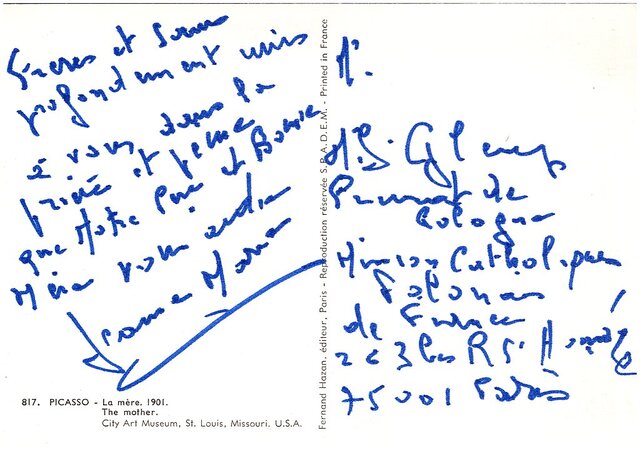 Frères et Sœurs
profondément unis
à vous dans la
prière et
que Notre Père et Bonne
Mère vous aide
comme Marie
817. PICASSO - La mère. 1901.
The mother.
City Art Museum, St. Louis, Missouri. U.S.A.
Fernand Hazan, éditeur, Paris - Reproduction réservée S.P.A.D.E.M. - Printed in France
M.
de
Cologne
Mission Catholique
Polonaise
de France
263 bis R St Honoré
75001 Paris